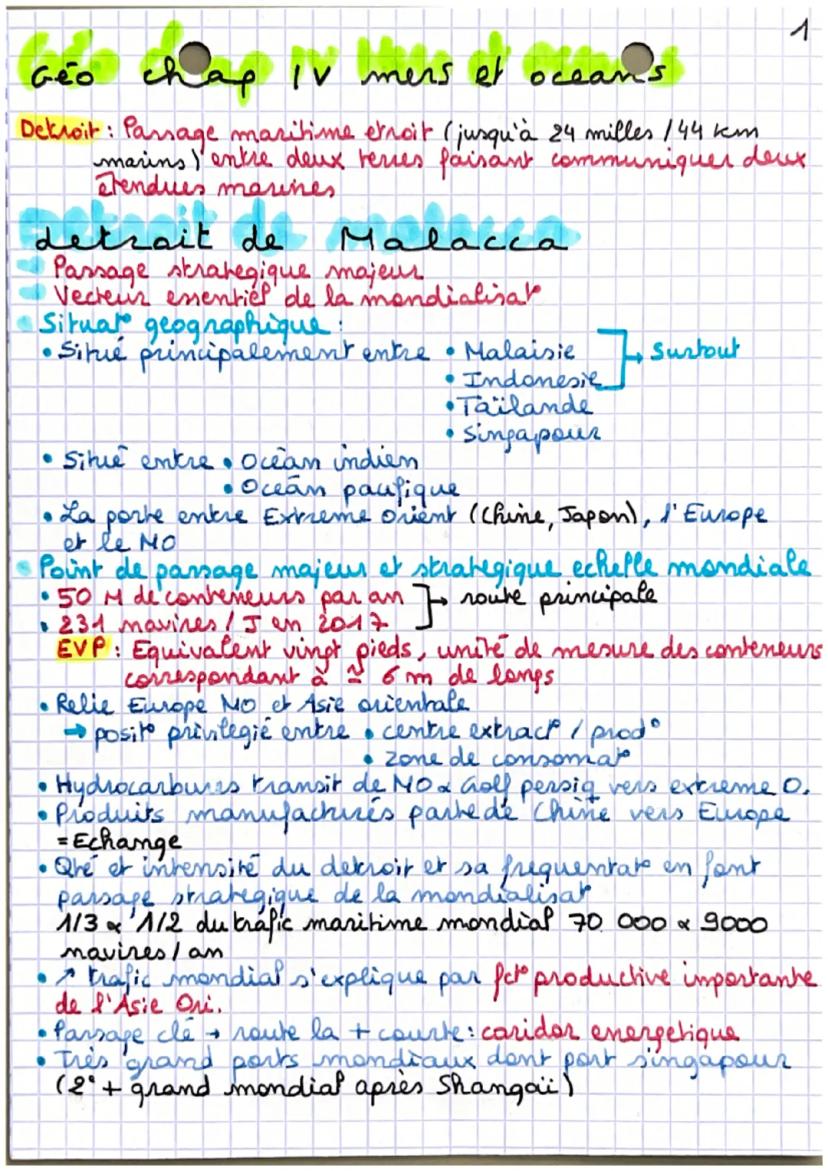 1
Géo chap IV mers et oceans
Detroit : Passage maritime etroit (jusqu'à 24 milles / 44 km
marins) entre deux terres faisant communiquer deux
étendues marines
detroit de Malacca
Passage strategique majeur
Vecteur essentiel de la mondialisat°
• Situat° geographique :
• Situé principalement entre • Malaisie
• Indonesie → Surtout
• Taïlande
• Singapour
• Situé entre • Océan indien
• Océan pacifique
• La porte entre Extreme Orient (Chine, Japon), l'Europe
et le MO
• Point de passage majeur et strategique echelle mondiale
• 50 M de conteneurs par an → route principale
• 231 navires / J en 2017
EVP : Equivalent vingt pieds, unité de mesure des conteneurs
correspondant à ≃ 6 m de longs
• Relie Europe MO et Asie orientale
→ posit° privilegié entre • centre extract° / prod°
• zone de consomat°
• Hydrocarbures transit de MO & Golf persiq vers extreme O.
• Produits manufacturés parte de Chine vers Europe
= Echange
• Qté et intensité du detroit et sa frequentat° en font
passage strategique de la mondialisat°
1/3 & 1/2 du trafic maritime mondial 70 000 & 9000
navires / an
• ↗ trafic mondial s'explique par fct° productive importante
de l'Asie Ori.
• Passage clé → route la + courte : coridor energetique
• Très grand ports mondiaux dont port singapour
(2° + grand mondial après Shangaï)